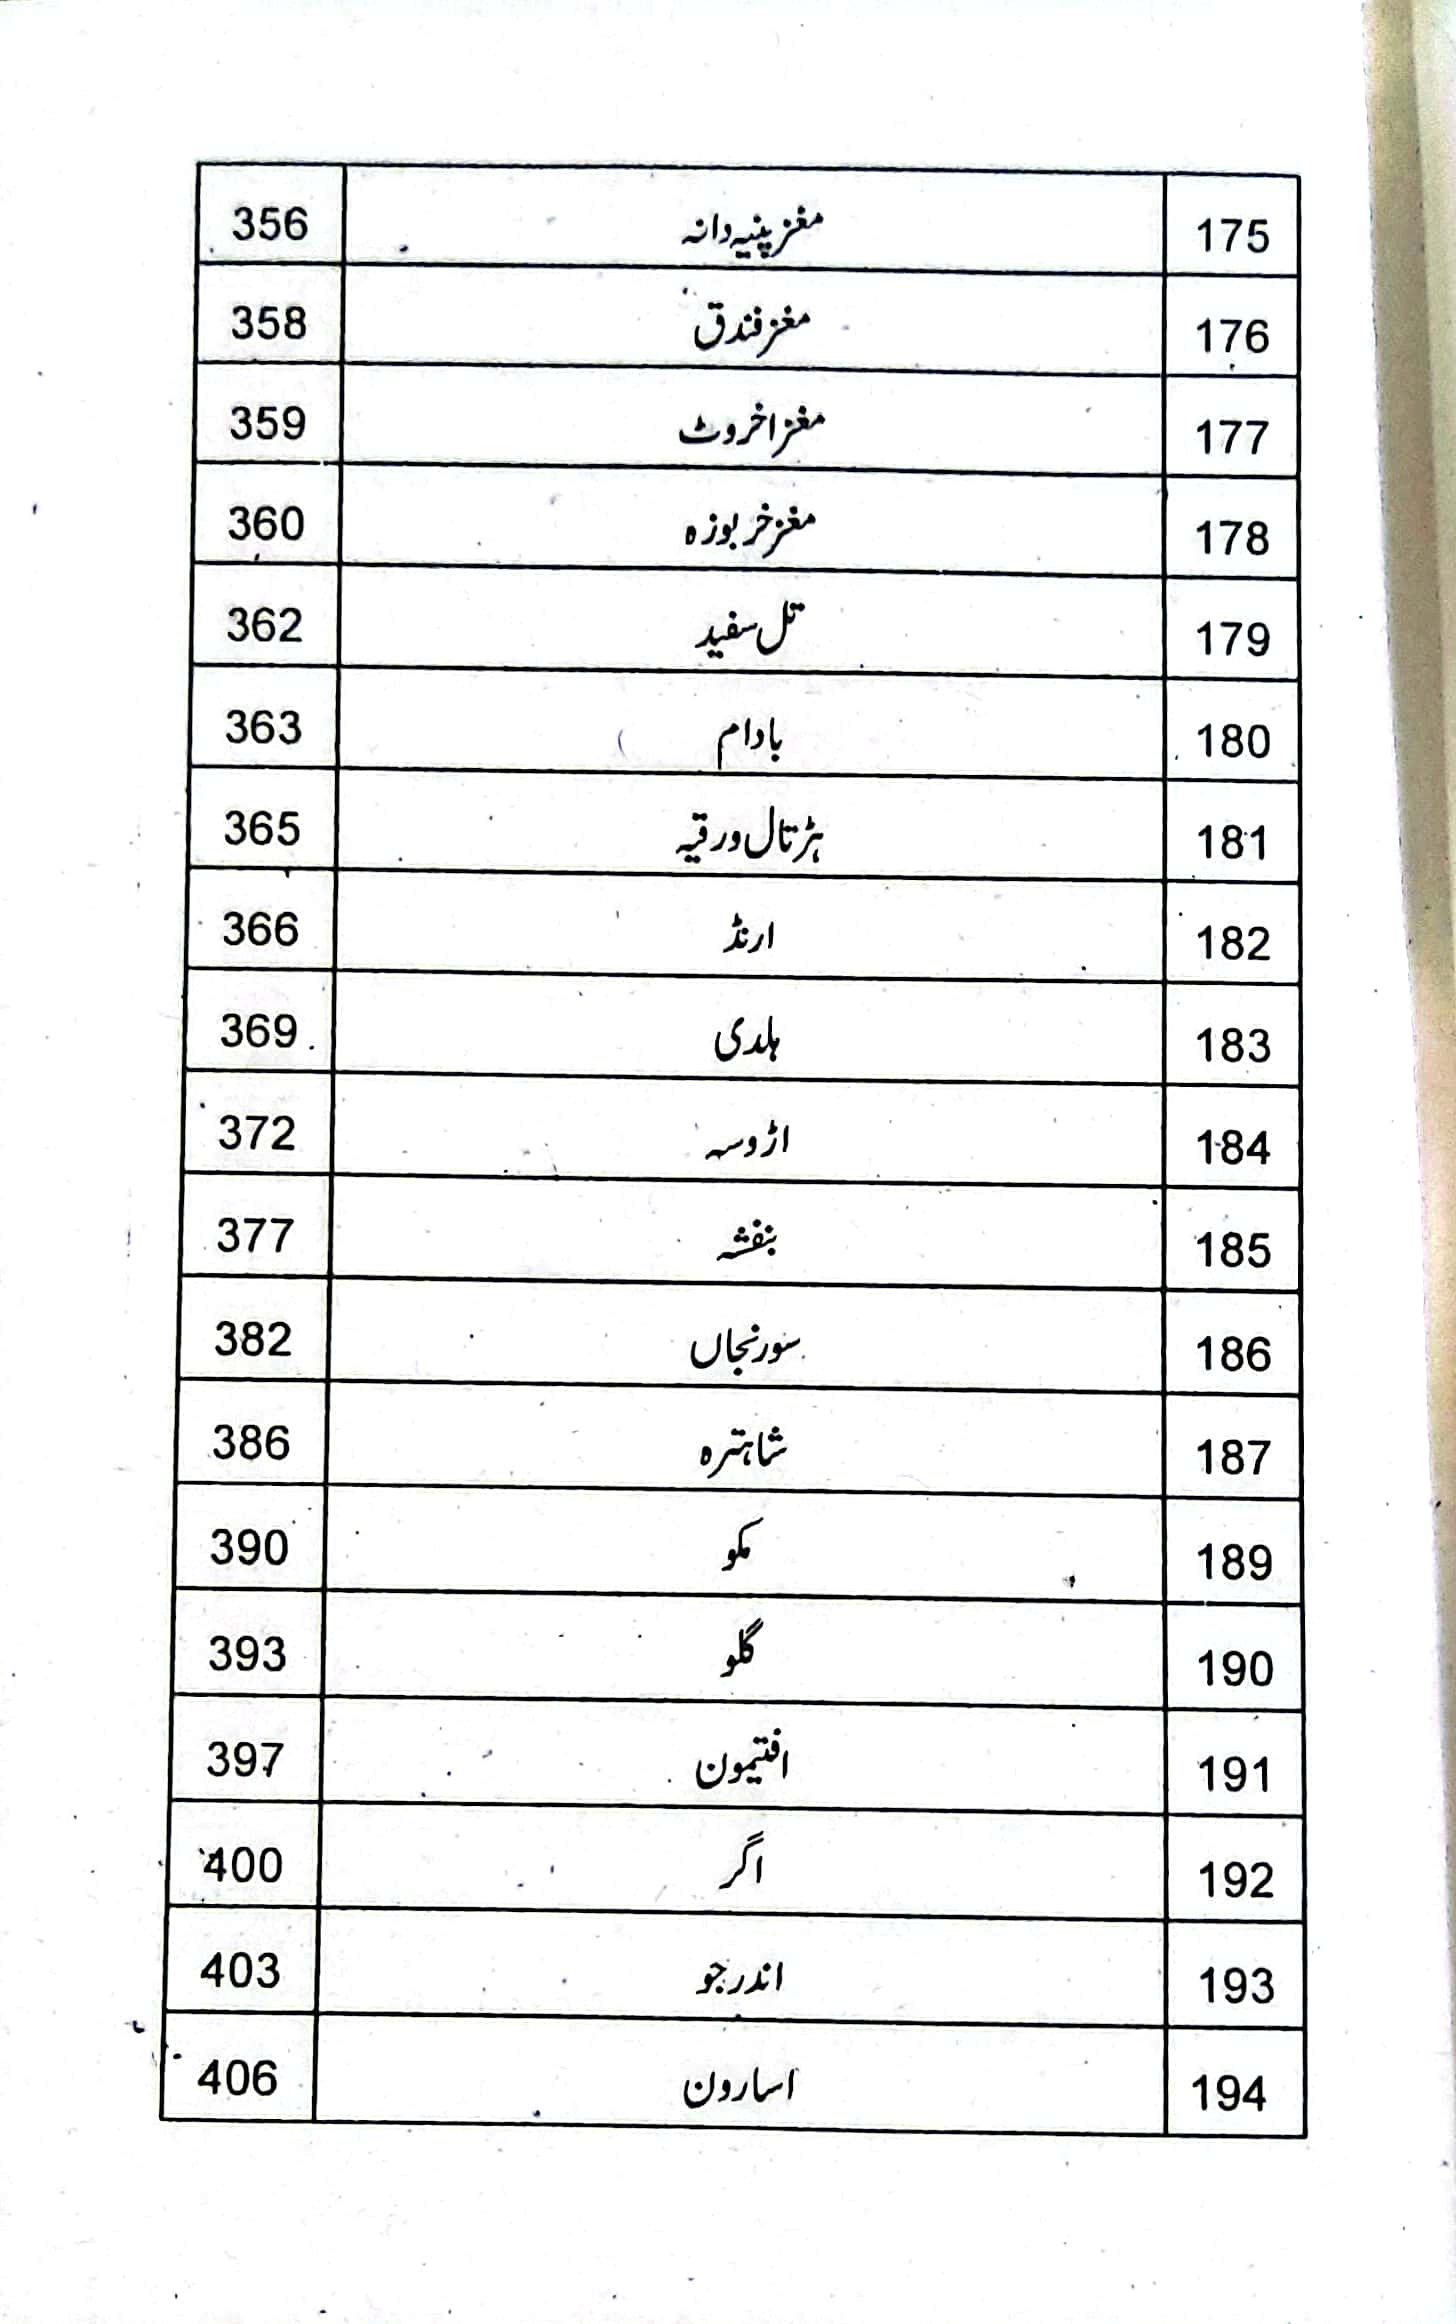 175 مغز پنیہ دانہ 356
176 مغز فندق 358
177 مغز اخروٹ 359
178 مغز خربوزہ 360
179 تل سفید 362
180 بادام 363
181 ہڑتال ورقیہ 365
182 ارنڈ 366
183 ہلدی 369
184 اڑوسہ 372
185 بنفشہ 377
186 سورنجاں 382
187 شاہترہ 386
189 مکو 390
190 گلو 393
191 افتیمون 397
192 اگر 400
193 اندرجو 403
194 اسارون 406